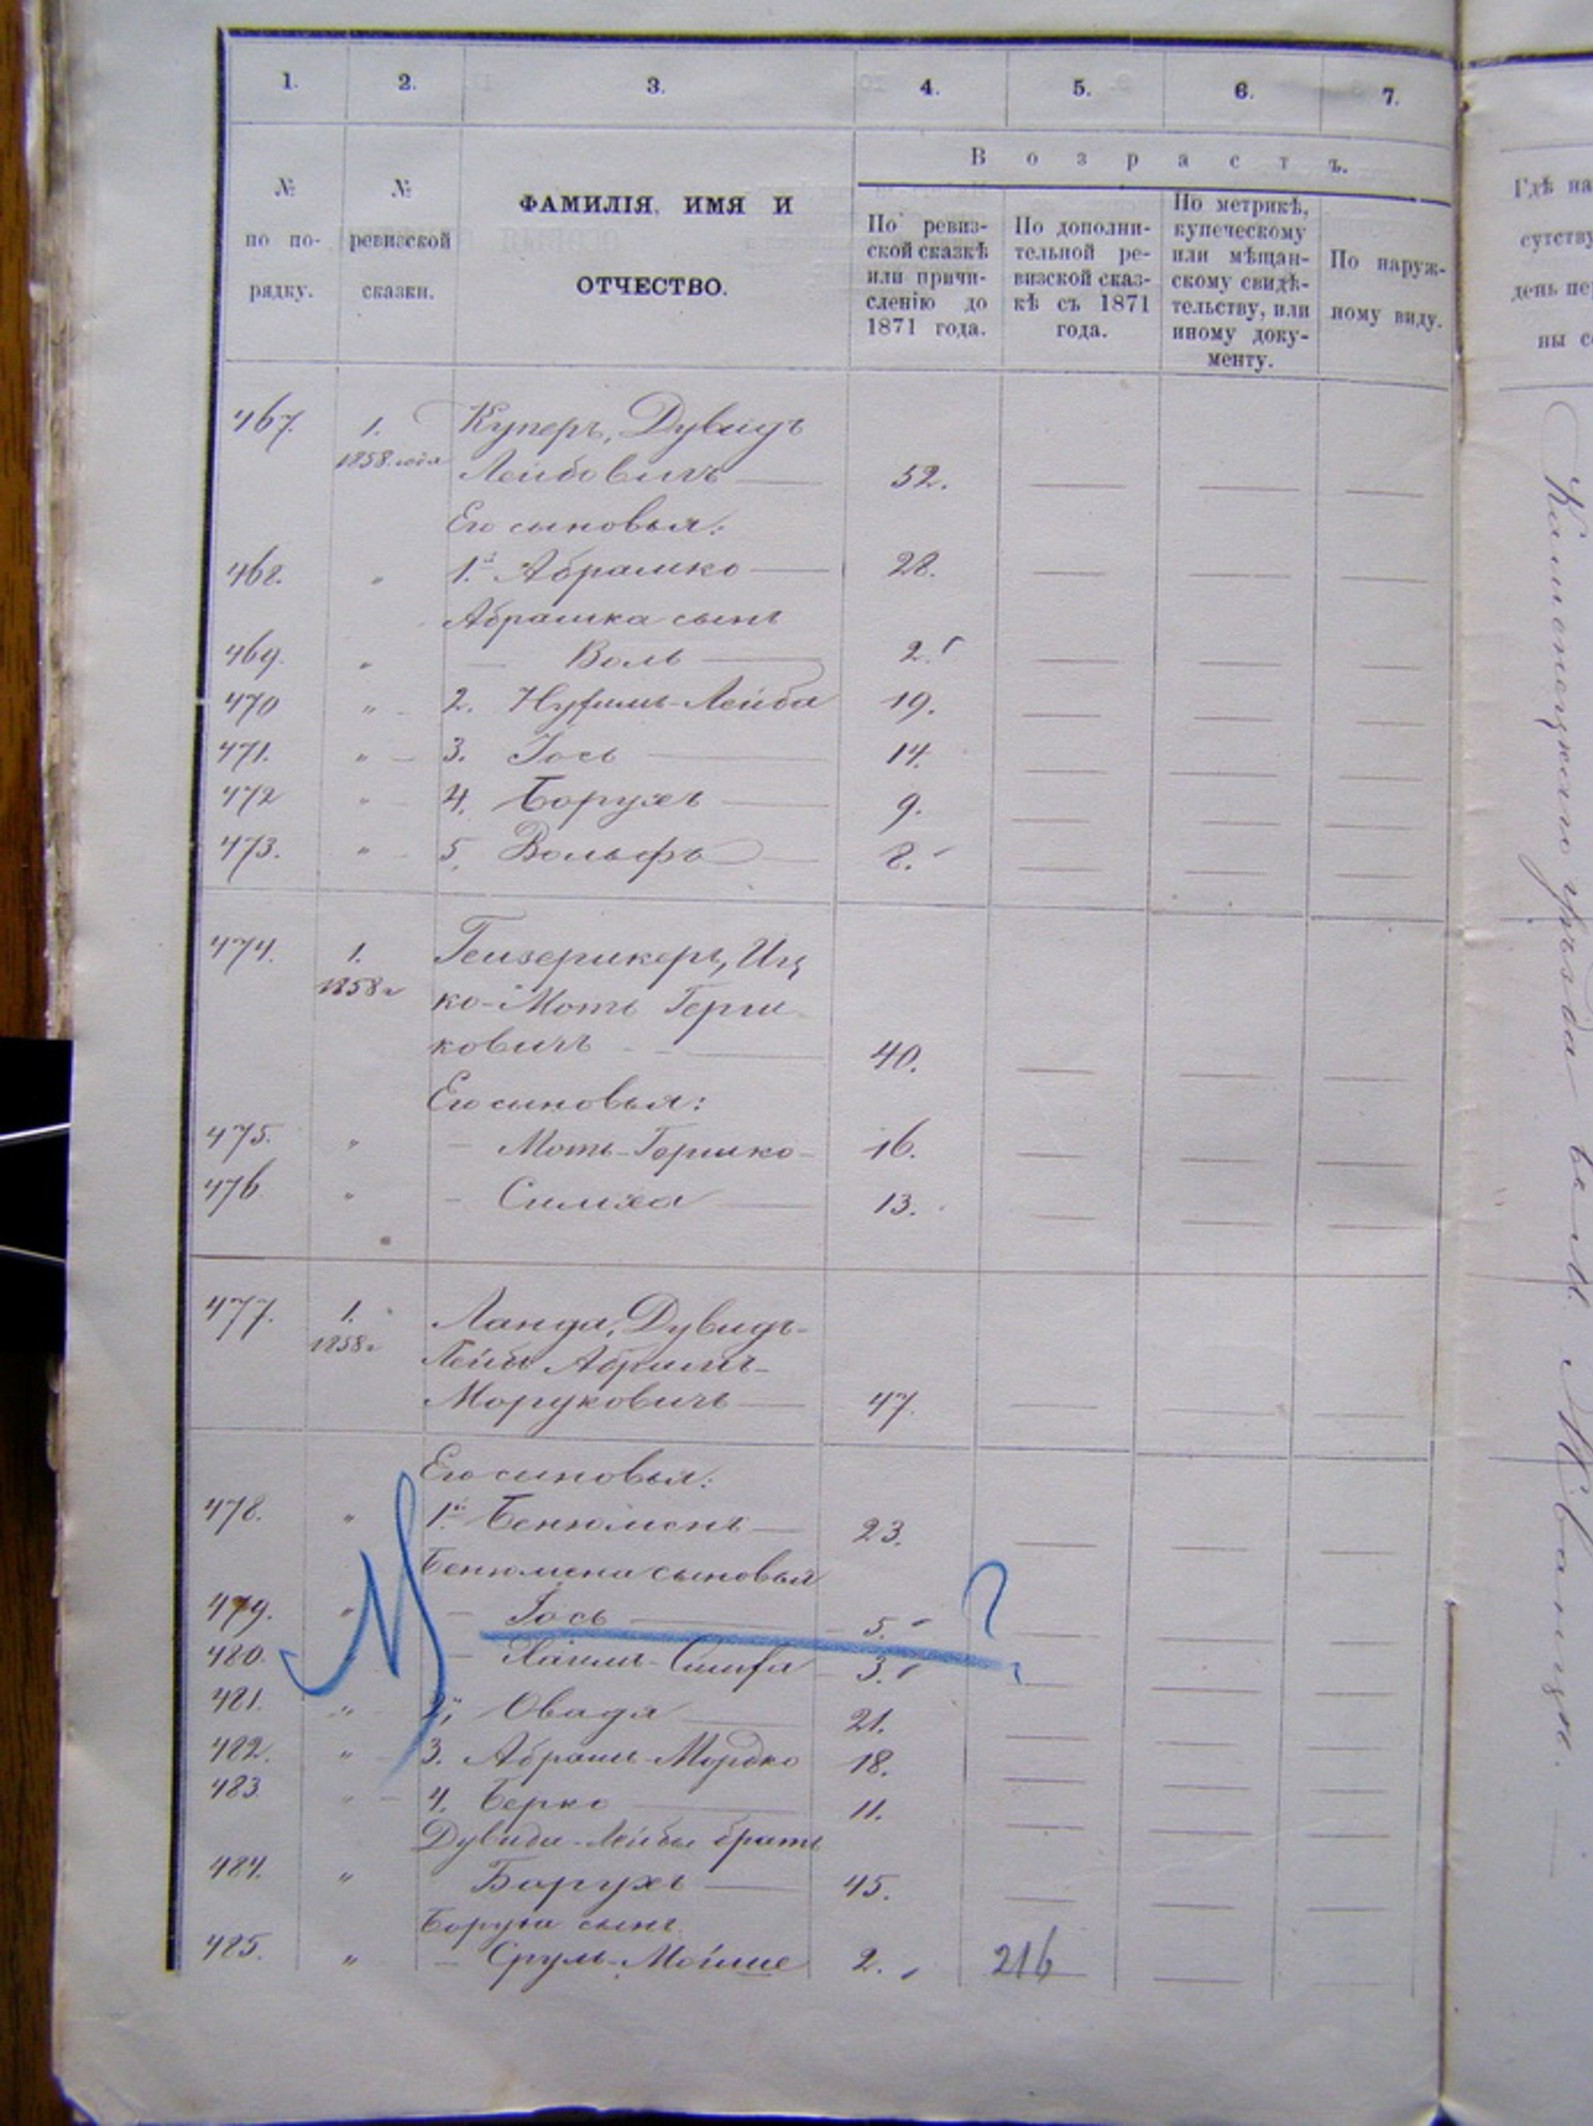 1. 2. 3. 4. 5. 6. 7.
В о з р а с т ъ.
№ по по-рядку.
№ ревизской сказки.
ФАМИЛІЯ, ИМЯ И
ОТЧЕСТВО.
По ревиз-
ской сказкѣ
или причи-
сленію до
1871 года.
По дополни-
тельной ре-
визской сказ-
кѣ съ 1871
года.
По метрикѣ,
купеческому
или мѣщан-
скому свидѣ-
тельству, или
иному доку-
менту.
По наруж-
ному виду.
Гдѣ на
сутству
день пе
ны с
467. 1. Куперъ, Дувидъ
1858 года Лейбовичъ — 52. — — —
Его сыновья:
468. " 1й Абрашко — 28. — — —
Абрашка сынъ
469. " — Воль — 2. — — —
470 " 2. Нухимъ-Лейба 19. — — —
471. " 3. Іось — 14. — — —
472 " 4. Борухъ — 9. — — —
473. " 5. Вольфъ — 8. — — —
474. 1. Гейзерикеръ, Иц
1858 г ко-Моть Герш
ковичъ — 40. — — —
Его сыновья:
475. " — Моть-Гершко — 16. — — —
476 " — Симха — 13. — — —
477. 1. Ланда, Дувидъ-
1858 г Лейба Абрамъ-
Моруковичъ — 47. — — —
Его сыновья:
478. " 1й Бенюменъ — 23. — — —
Бенюмена сыновья
479. " — Іось — 5. ? — — —
480. " — Хаимъ- 3. — — —
481. " 2й Овадя — 21. — — —
482. " 3. Абрамъ-Мордко 18. — — —
483 " 4. Берко — 11. — — —
Дувида-Лейбы братъ
484. " Борухъ — 45. — — —
Боруха сынъ
485. " — Сруль-Мойше 2. 216 — —
Каменецкого уѣзда въ м. Жванци.